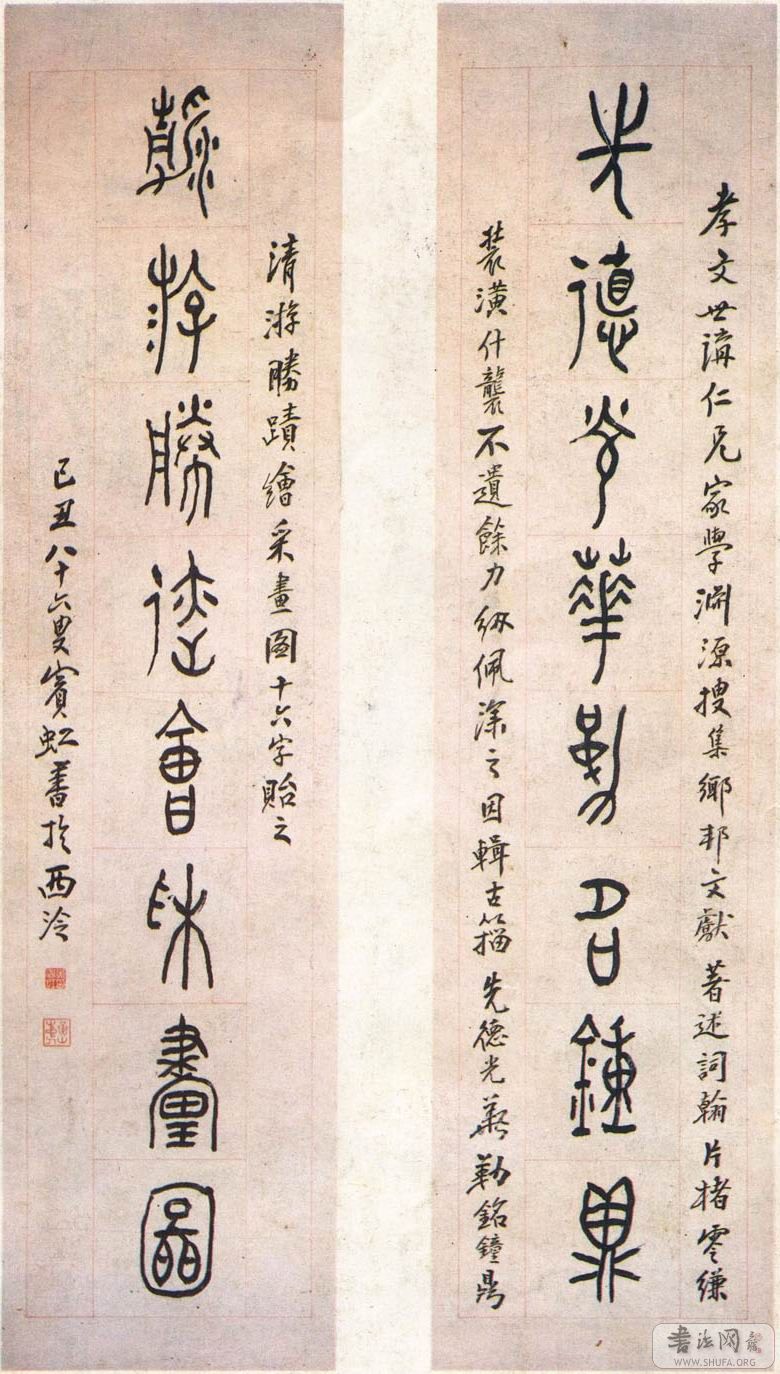 孝文世講仁兄家學淵源搜集鄉邦文獻著述詞翰片楮零縑
先德光華勒名鍾鼎
裝潢什襲不遺餘力紉佩深之因輯古籀先德光華勒銘鐘鼎
清游勝蹟繪采畫圖十六字貽之
游勝蹟會采畫圖
己丑八十六叟賓虹書於西泠
書法网
WWW.SHUFA.ORG